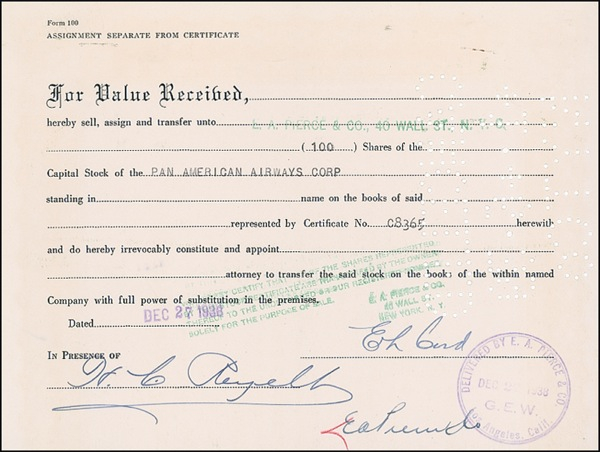 Form 100
ASSIGNMENT SEPARATE FROM CERTIFICATE
For Value Received,
hereby sell, assign and transfer unto E. A. PIERCE & CO., 40 WALL ST. N. Y. C.
(100) Shares of the
Capital Stock of the PAN AMERICAN AIRWAYS CORP
standing in name on the books of said
represented by Certificate No. C8365 herewith
and do hereby irrevocably constitute and appoint
attorney to transfer the said stock on the books of the within named
Company with full power of substitution in the premises.
CERTIFY THAT THE SHARES REPRESENTED
BY THE OWNER
SOLELY FOR THE PURPOSE OF SALE.
E. A. PIERCE & CO.
40 WALL ST.
NEW YORK, N. Y.
DEC 27 1936
Dated
IN PRESENCE OF
DELIVERED BY E. A. PIERCE & CO
DEC 1936
G.E.W.
Los Angeles, Calif.